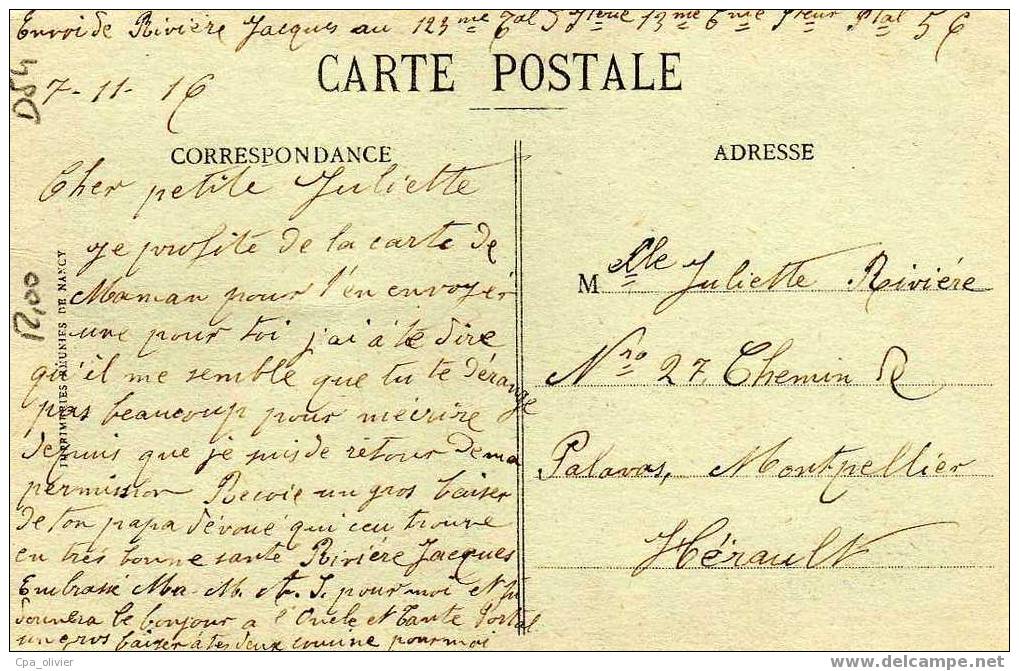 Envoi de Rivière Jacques au 123me Tal 5 13me 56
D54
7-11-16
CARTE POSTALE
CORRESPONDANCE
Cher petite Juliette
je profite de la carte de
Maman pour l'en envoyér
une pour toi j'ai à te dire
qu'il me semble que tu te dérange
pas beaucoup pour mécrire
depuis que je suis de retour de ma
permission Recoie un gros baiser
de ton papa dévoué qui ceu trouve
en très bonne santé Riviére Jacques
Embrasse Ma. M. et J. pour moi et tu
donnera le bonjour a l'Oncle et Tante Portal
un gros baiser à tes deux cousine pour moi
12,00
IMPRIMERIES RÉUNIES DE NANCY
ADRESSE
Melle Juliette Riviére
Nro 27, Chemin de
Palavas, Montpellier
Hérault
Cpa_olivier
delcampe.net